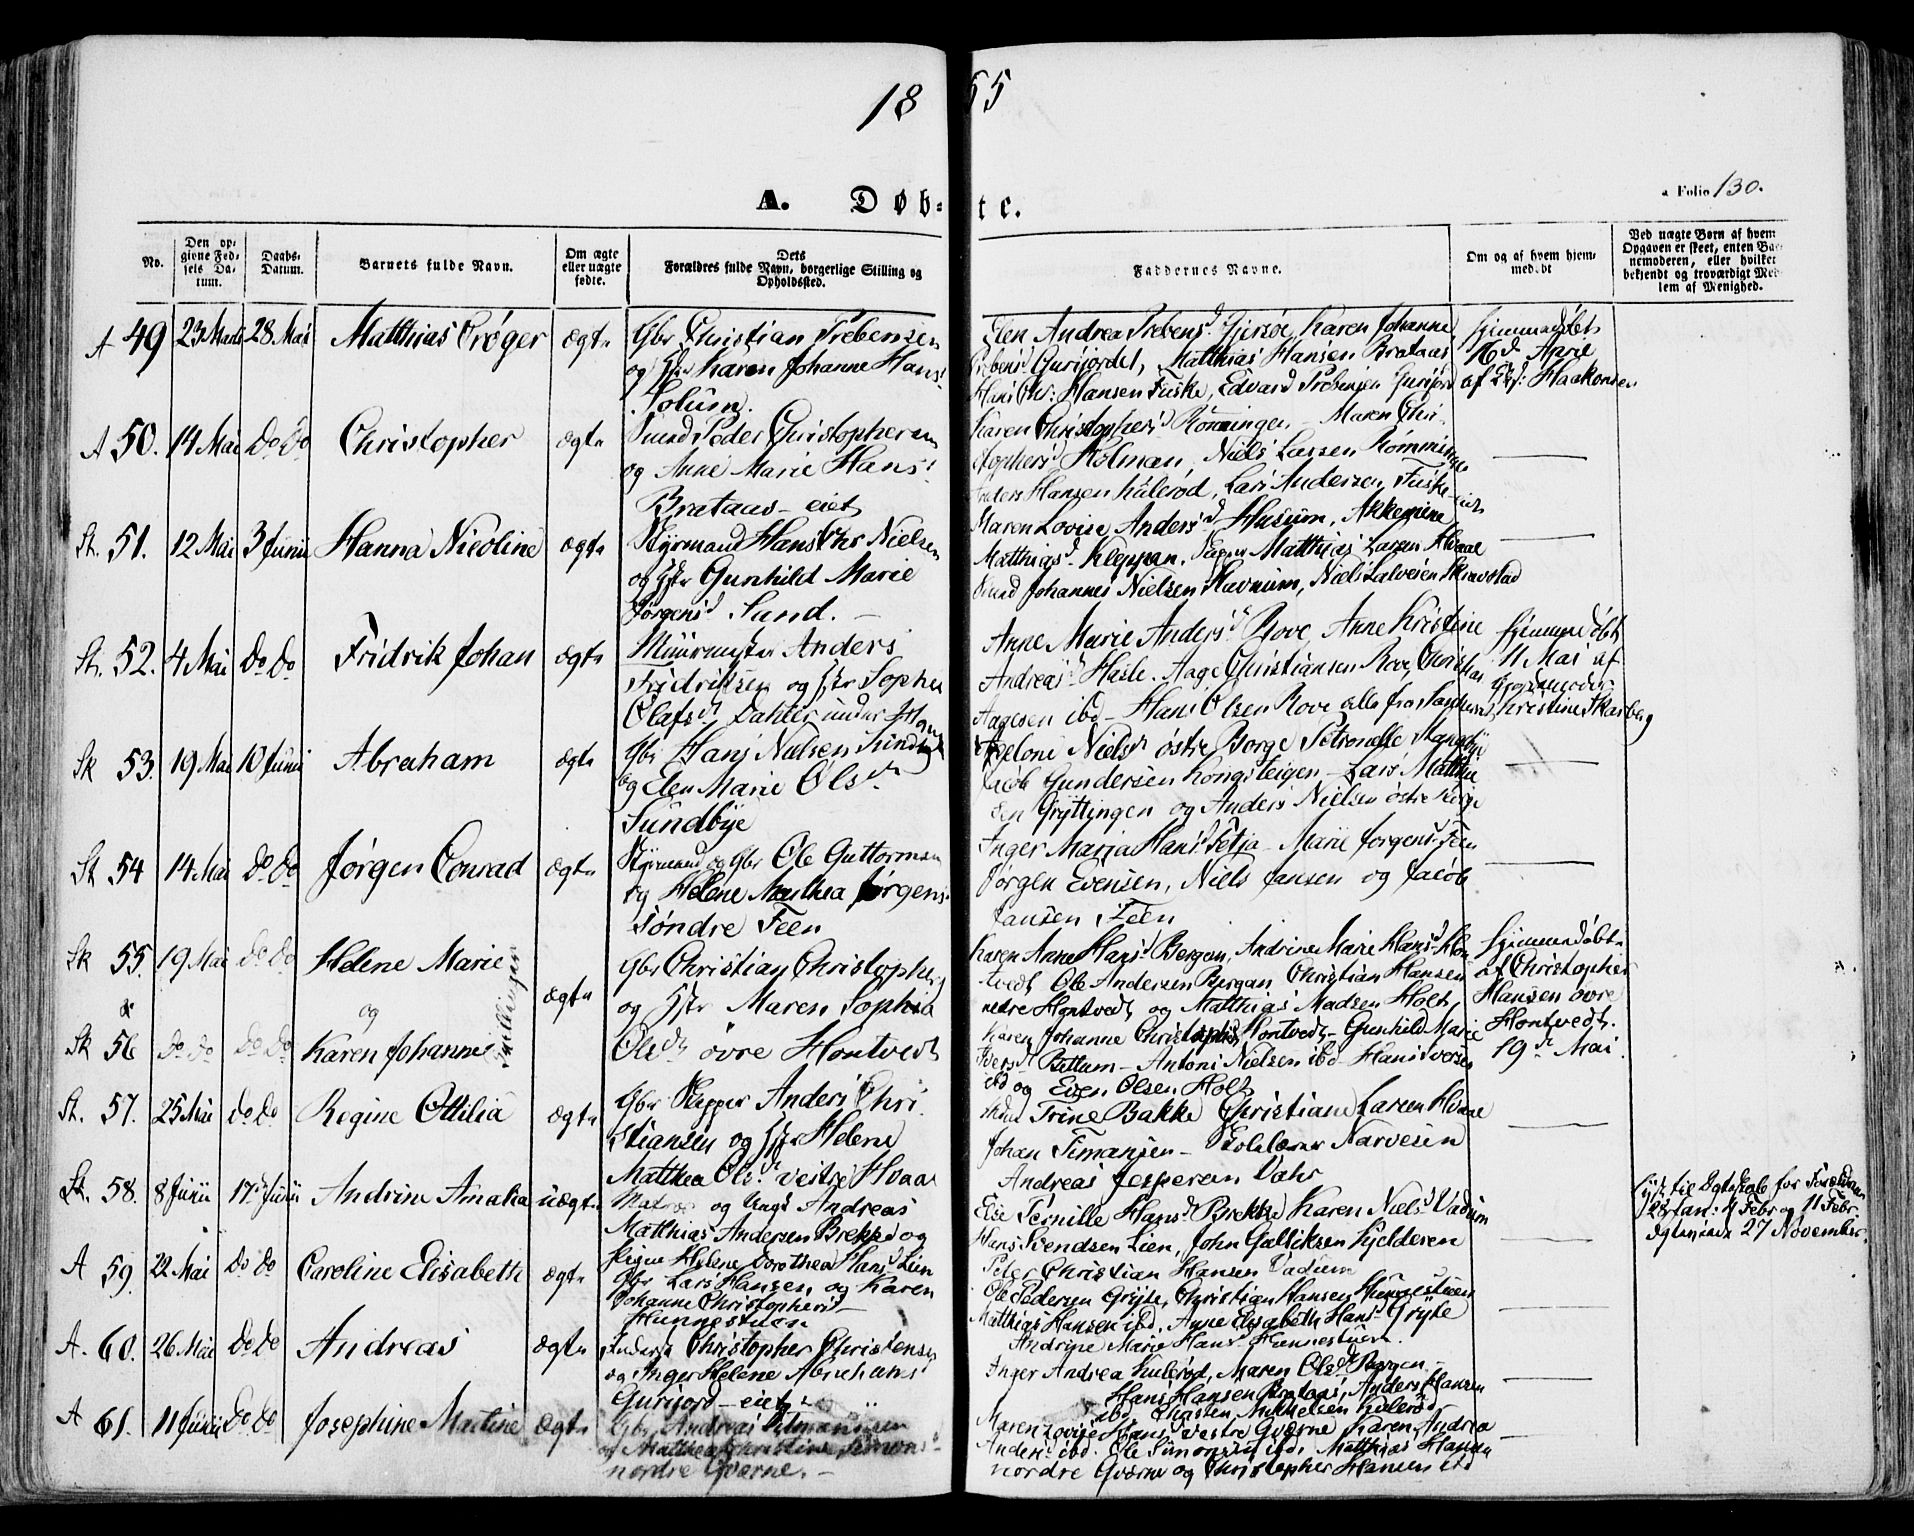 18 55
A. Døb- te.
a Folio 130.
No.
Den op-
givne Fød-
sels Da-
tum.
Daabs-
Datum.
Barnets fulde Navn.
Om ægte
eller uægte
fødte.
Dets
Forældres fulde Navn, borgerlige Stilling og
Opholdssted.
Faddernes Navne.
Om og af hvem hjem-
medøbt
Ved uægte Børn af hvem
Opgaven er skeet, enten Bar-
nemoderen, eller hvilket
bekjendt og troværdigt Med-
lem af Menighed.
A 49 23 Marts 28 Mai Matthias Crøger ægte
Gbr Christian Prebensen
og Hstr Karen Johanne Hans
Solum.
Elen Andrea Prebens d. Gjersøe, Karen Johanne
Prebens d. Gurijordet, Matthias Hansen Brataas
Hans Chr: Hansen Fuske, Edvard Prebensen Gurijord
Hjemmedøbt
16 d April
af Haakonsen
A 50. 14 Mai Do Do Christopher ægte
Peder Christophersen
og Anne Marie Hans
Brataas - eiet
Karen Christophers d Rönningen - Maren Chri-
stophers d Holman, Niels Larsen Rönningen
Anders Hansen Kulerød, Lars Andersen, Fuske-
eiet
St. 51. 12 Mai 3 Junii Hanna Nicoline ægte
Styrmand Hans Chr Nielsen
og Hstr Gunhild Marie
Jörgens d Sund. -
Maren Lovise Anders d Husum, Akkemine
Matthias d. Kleppan. Skipper Matthias Larsen Hvaal
Johannes Nielsen Havnum, Niels Skravestad
St. 52. 4 Mai Do Do Fridrik Johan ægte
Muurmester Anders
Fridriksen og Hstr Sophie
Olafs dt Dahler under
Anne Marie Anders d Rove, Anne Kristine
Andreas d Hasle. Aage Christiansen Rove, Christian
Aagesen ibd - Hans Olsen Rove alle fra
Hjemmedøbt
11 Mai af
Christine Skarberg
Sk 53. 19 Mai 10 Junii Abraham ægte
Gbr Hans Nielsen Sundbye
og Elen Marie Ols dt
Sundbye
Niels dt østre Borge Petronelle
Jacob Gundersen Kongsteigen - Lars Matthi-
sen Gryttingen og Anders Nielsen østre
St 54 14 Mai Do Do Jørgen Conrad ægte
Styrmand og Gbr Ole Guttormsen
og Helene Mathea Jørgens
Söndre Feen
Inger Maria Hans d - Marie Jorgens d. Feen
Jörgen Evensen, Niels Jansen og Jacob
Jansen Feen
Sk 55. 19 Mai Do Do Helene Marie
og
Tvillinger
ægte
Gbr Christian Christophers
og Hstr Maren Sophia
Ols dt övre Hontvedt
Karen Anne Hans d Bergan, Andrine Marie Hans d Hon-
tvedt Ole Andersen Bergan Christian Hansen
nedre Hontvedt og Matthias Madsen Holt
Hjemmedøbt
af Christopher
Hansen övre
Hontvedt.
19 d Mai
Sk 56 Do Do Do Do Karen Johanne
Karen Johanne Christophs d Hontvedt - Gunhild Marie
Bettum - Anton Nielsen ibd - Hans Iversen
ibd og Even Olsen Holt
St. 57. 25 Mai Do Do Regine Ottilia ægte
Gbr Skipper Anders Chri
stiansen og Hstr Helene
Matthea Ols d. vestre Hvaal
Trine Bakke Christiane Larsen Hvaal
Johan Simansen - Skolelærer Narvesen
Andreas Jespersen
Sk. 58. 8 Junii 17. Junii Andrine Amalia uægte
Matros og Ungk Andreas
Matthias Andersen Brekke og
Pigen Helene Dorothea Hans d Lien
Else Pernille Hans d Brekke Karen Niels d Vadum
Hans Svendsen Lien, John Gulliksen Kjelderen
Peter Christian Hansen Vadum
Lyst til Ægteskab for Forældrene
28 Jan: 4 Febr og 11 Febr.
Ægteviede 27 November.
A 59. 22 Mai Do Do Caroline Elisabeth ægte
Gbr Lars Hansen og Karen
Johanne Christophers d -
Hunnestuen
Ole Pedersen Gryte, Christian Hansen Hunnestuen
Matthias Hansen ibd. Anne Elisabeth Hans d Gryte
Andrine Marie Hans d Hunnestuen.
A. 60. 26 Mai Do Do Andreas ægte
Christopher Christensen
og Inger Helene Abrahams d
Gurijord - eiet
Inger Andrea Kulerød, Maren Ols d Bergan -
Hans Hansen Brataas, Anders Hansen
ibd. Mikkelsen Kulerød.
A 61. 11 Junii Do Do Josephine Martine Ægte
Gbr Andreas
og Mathea Christine Simons d
nordre Gværne. -
Maren Lovise Hans d vestre Gværne Karen Andrea
Anders d ibd. Ole Simonsen ibd. Matthias Hansen
nordre Gværne og Christopher Hansen ibd